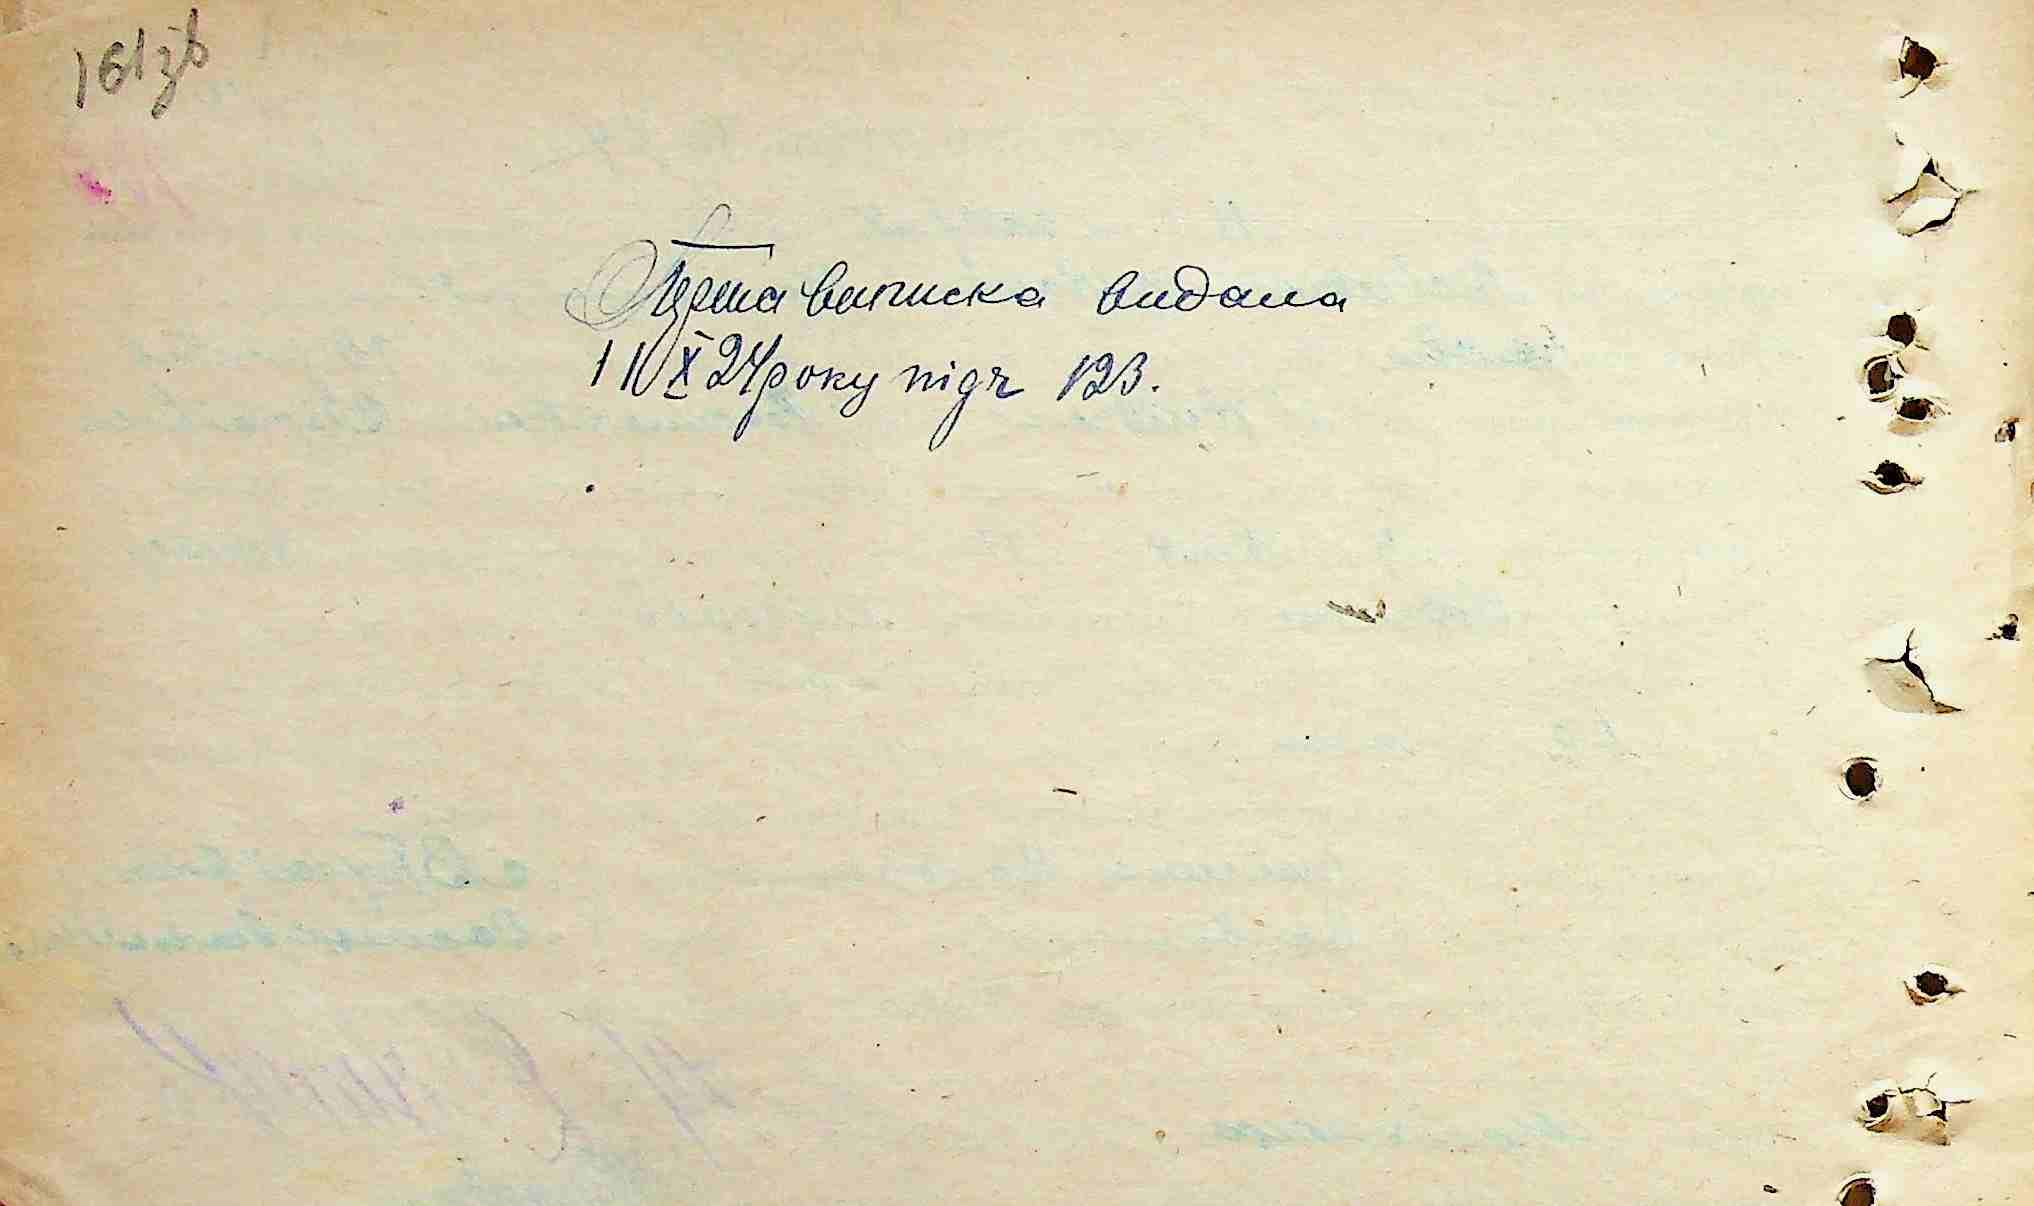 161зв
Перша виписка видана
11/X 24 року підч 123.